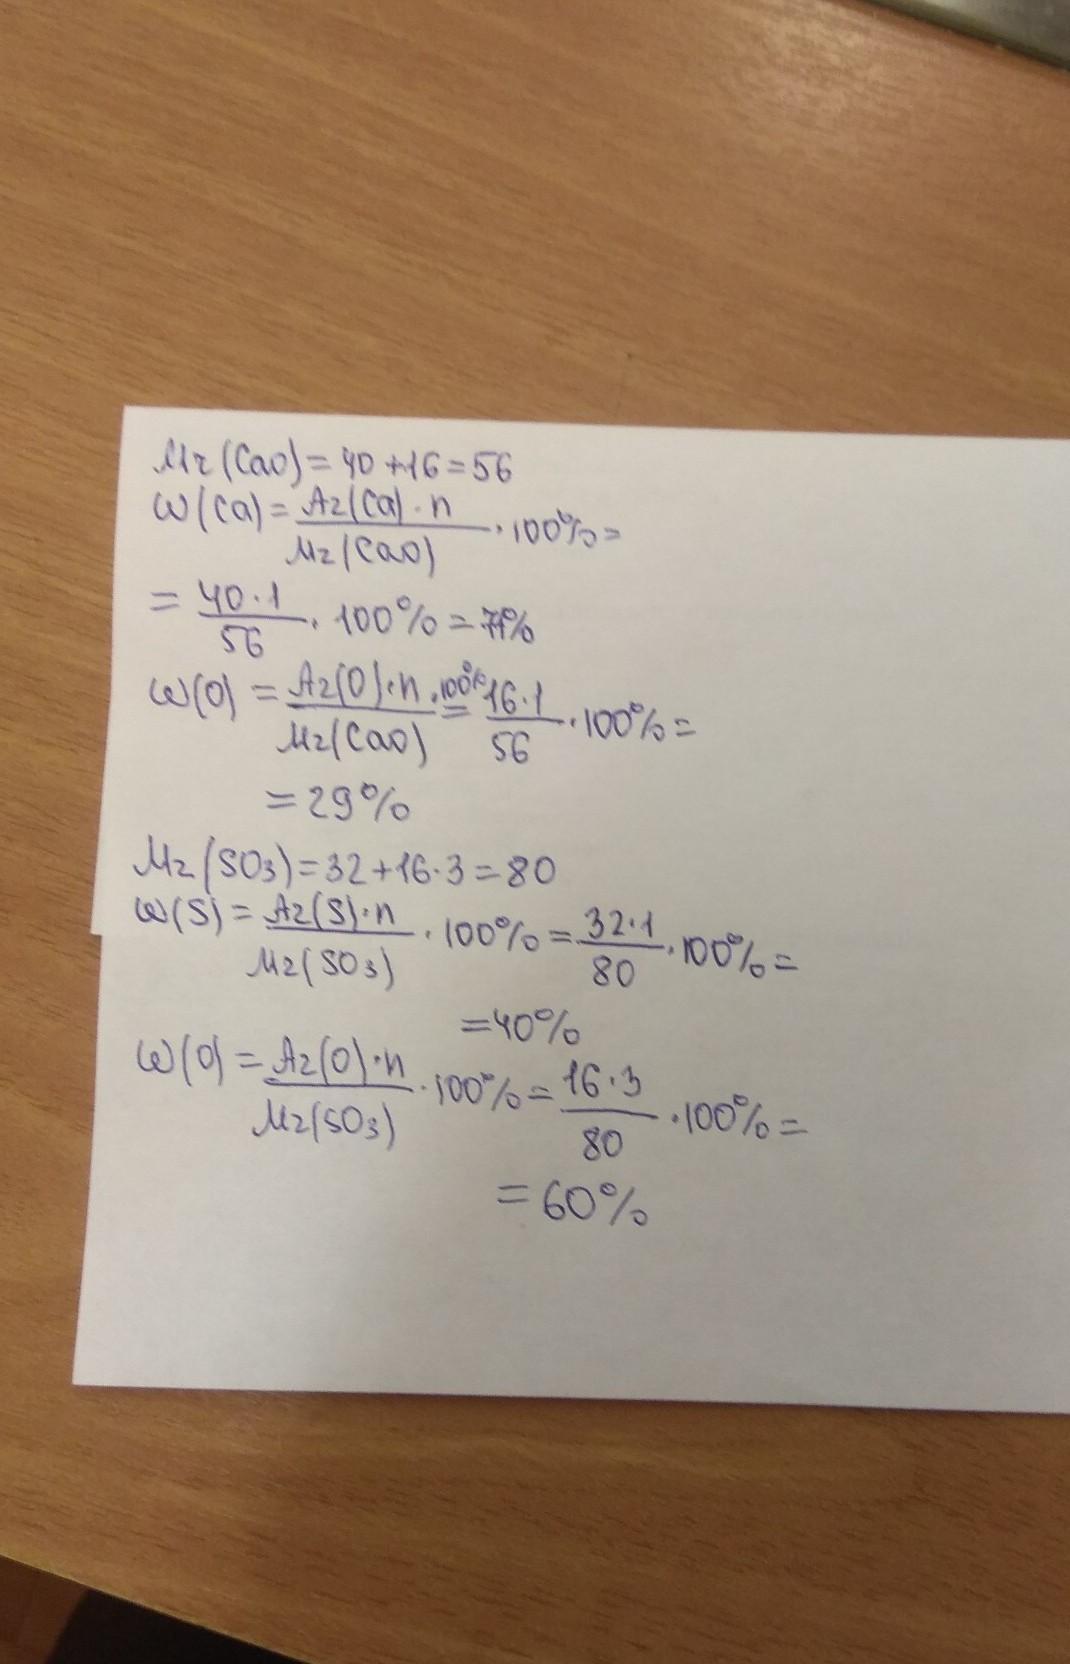 Mr(CaO)=40+16=56
ω(Ca)=Ar(Ca)·n/Mr(CaO)·100%=
=40·1/56·100%=71%
ω(O)=Ar(O)·n/Mr(CaO)·100%=16·1/56·100%=
=29%
Mr(SO3)=32+16·3=80
ω(S)=Ar(S)·n/Mr(SO3)·100%=32·1/80·100%=
=40%
ω(O)=Ar(O)·n/Mr(SO3)·100%=16·3/80·100%=
=60%